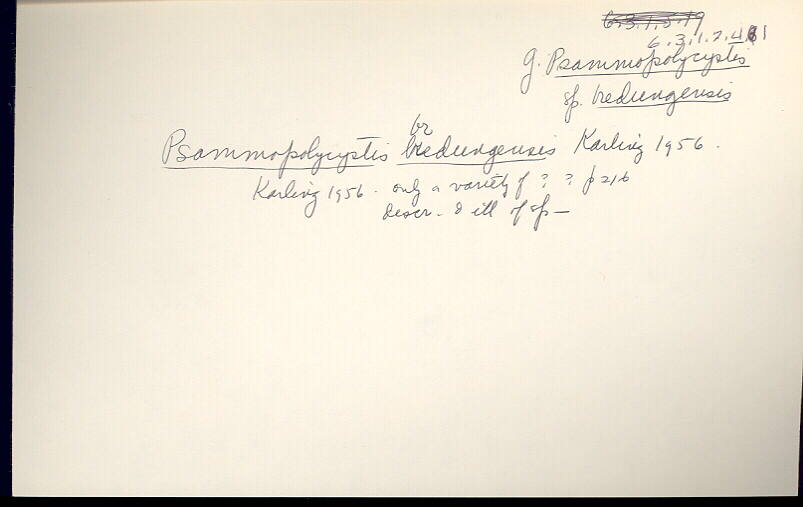 6.3.1.2.4.1
g. Psammopolycystis
sp. bredungensis
br
Psammopolycystis bredungensis Karling 1956.
Karling 1956. only a variety of ? ? p 216
descr. & ill of sp —